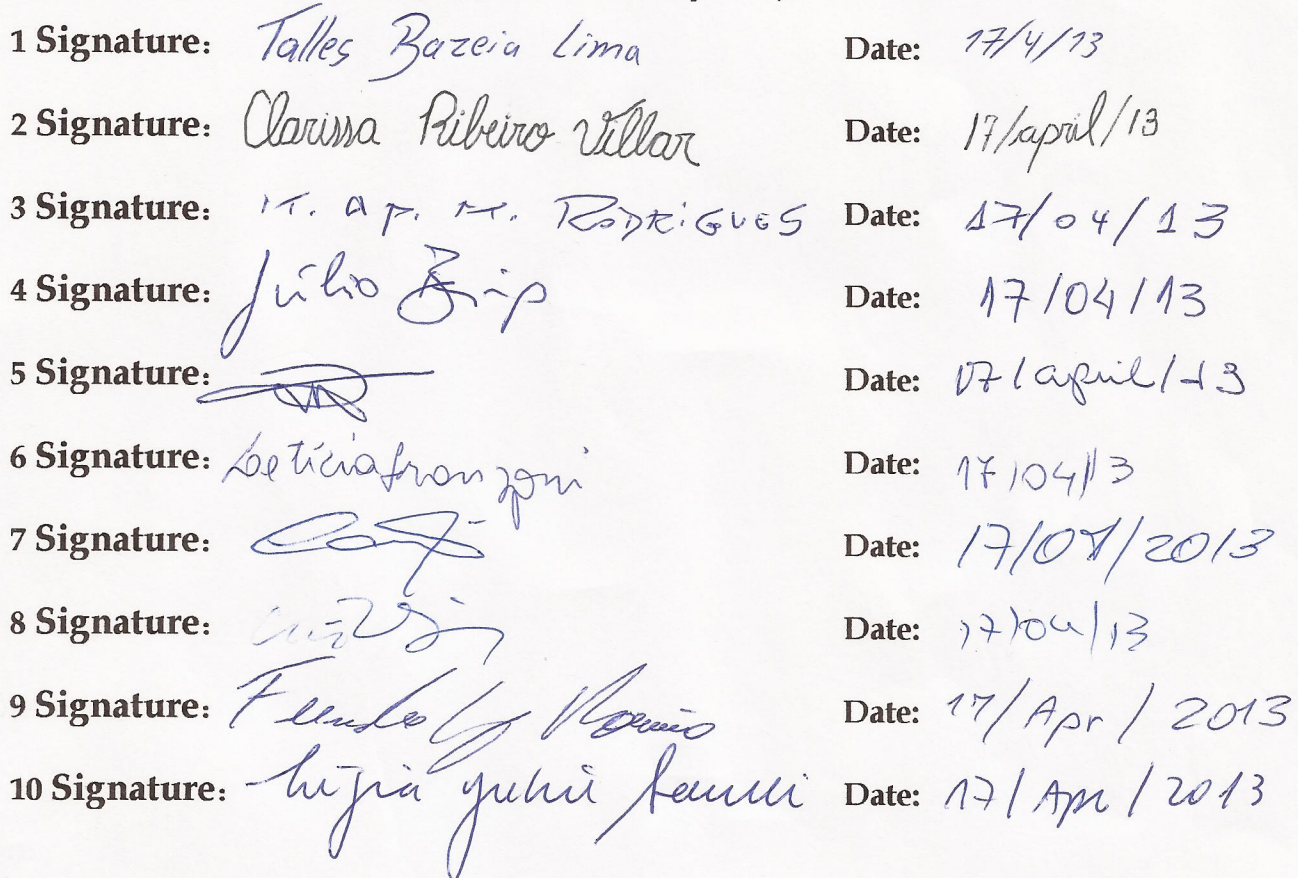 1 Signature: Talles Bazeia Lima Date: 17/4/13
2 Signature: Clarissa Ribeiro Villar Date: 17/april/13
3 Signature: M. AP. M. RODRIGUES Date: 17/04/13
4 Signature: Júlio Date: 17/04/13
5 Signature: Date: 17/april/13
6 Signature: Leticia franzoni Date: 17/04/13
7 Signature: Date: 17/04/2013
8 Signature: Date: 17/04/13
9 Signature: Date: 17/Apr/2013
10 Signature: Ligia Date: 17/Apr/2013